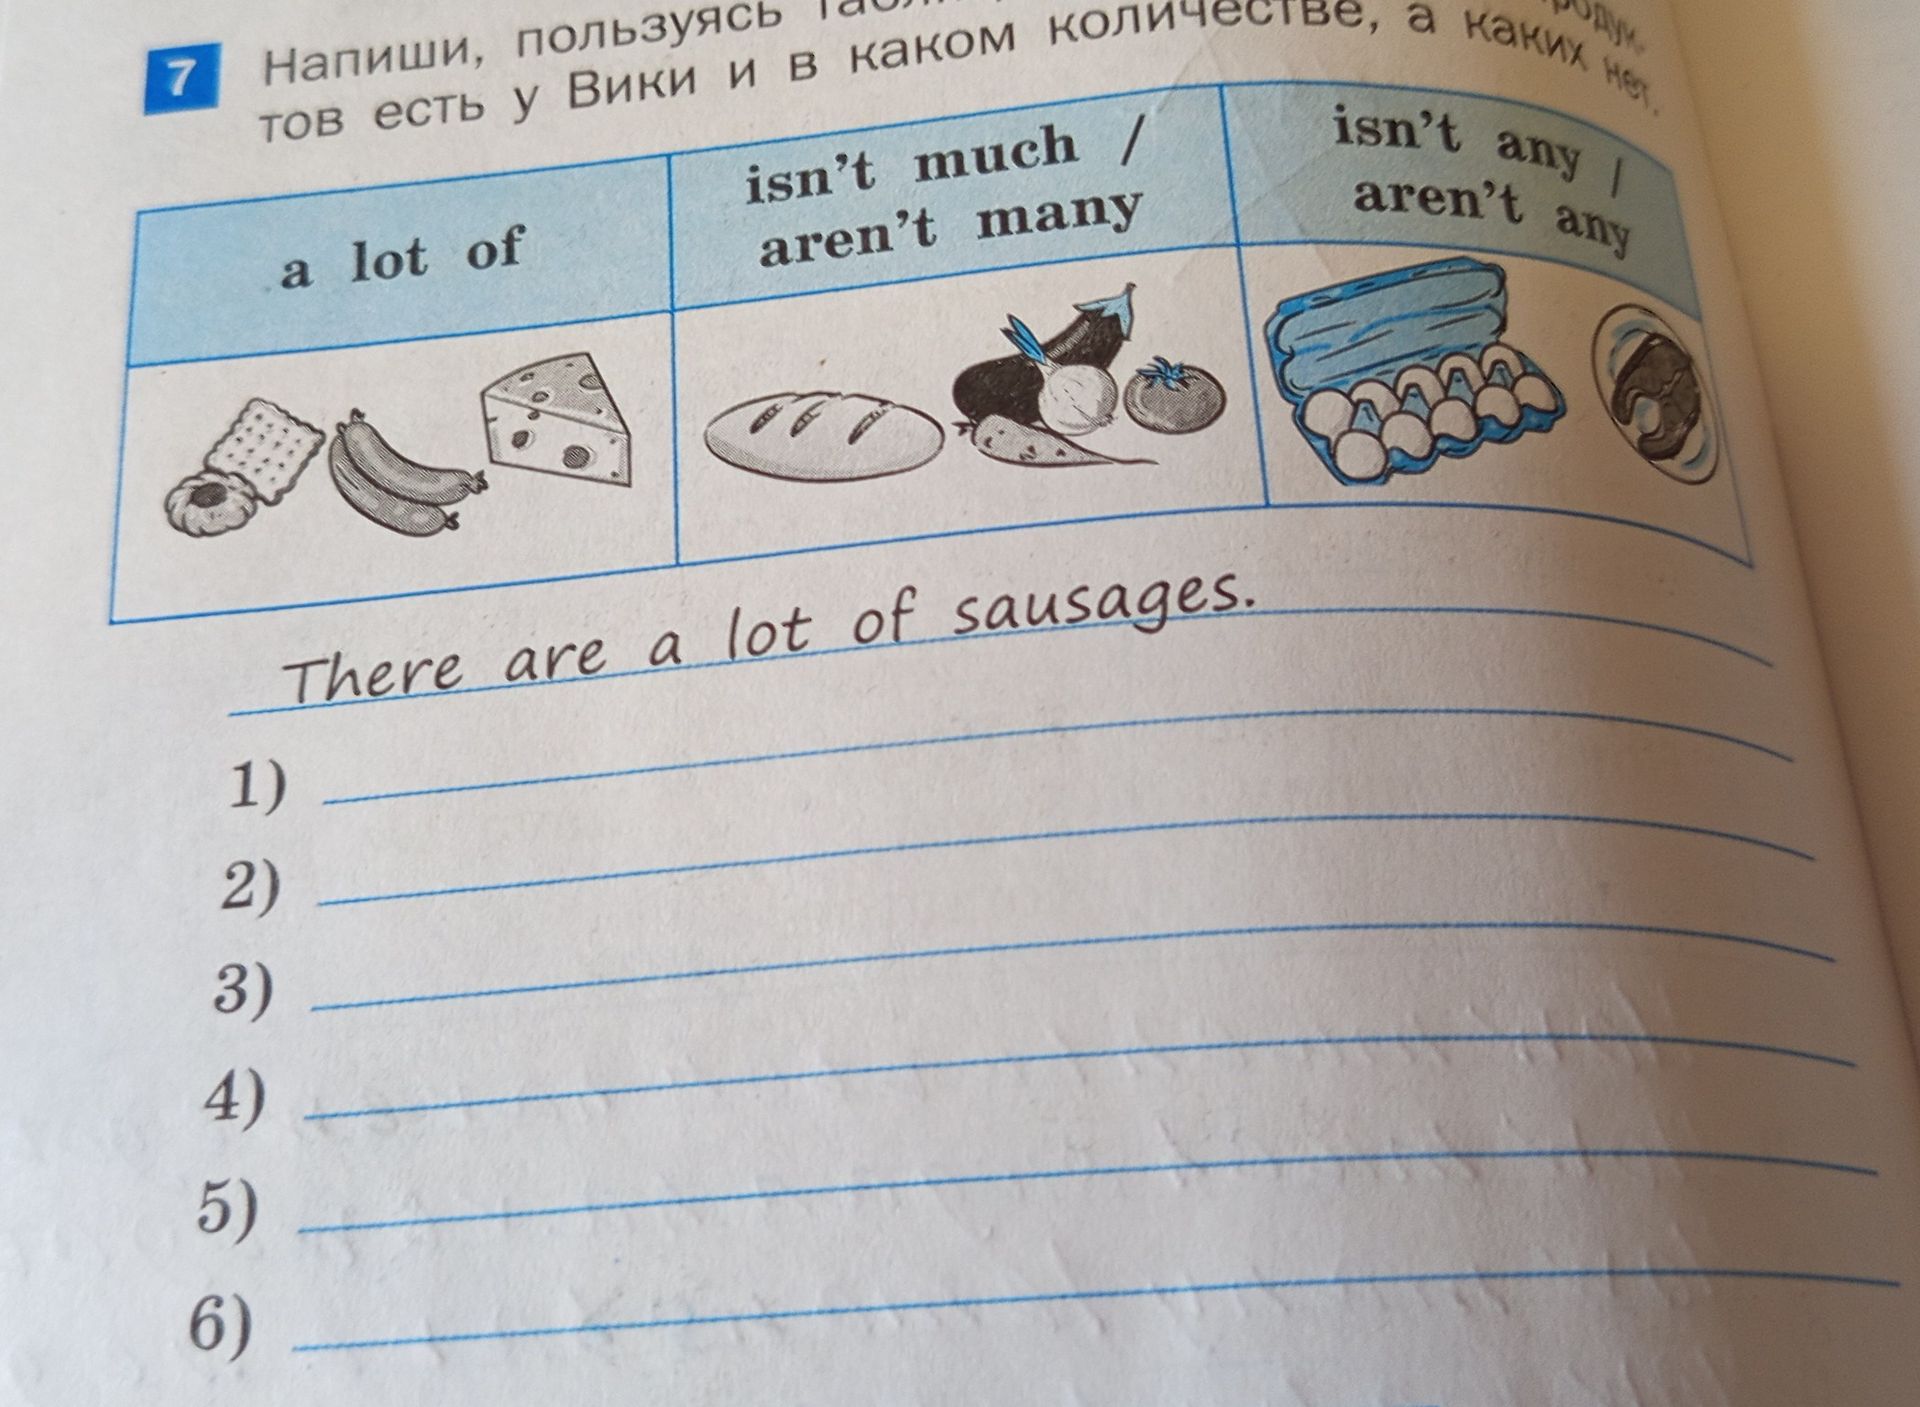 7 Напиши, пользуясь
тов есть у Вики и в каком количестве, а каких нет.
a lot of
isn't much /
aren't many
isn't any /
aren't any
There are a lot of sausages.
1)
2)
3)
4)
5)
6)